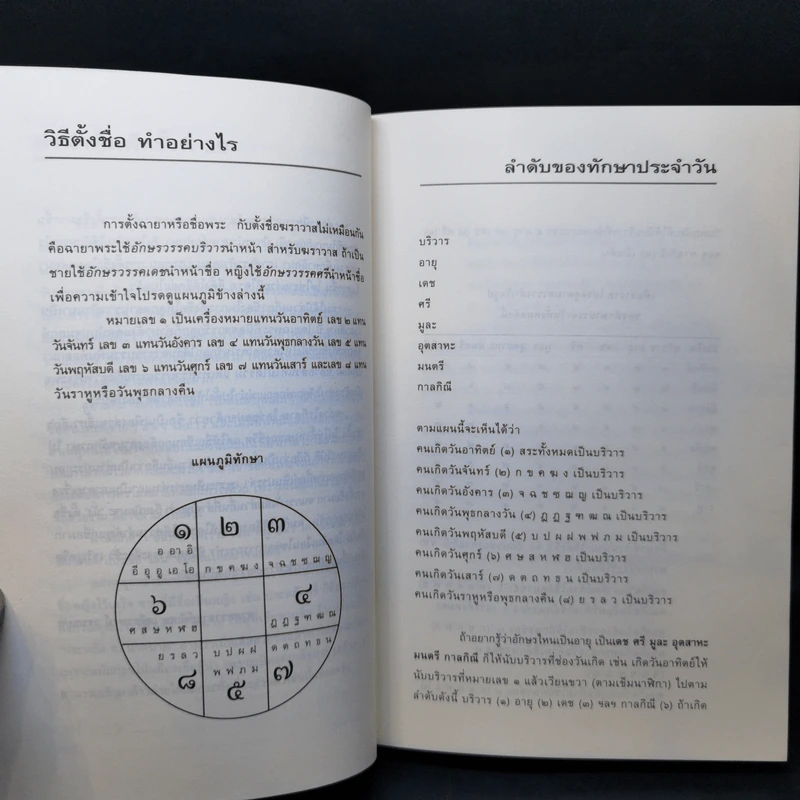 วิธีตั้งชื่อ ทำอย่างไร
การตั้งฉายาหรือชื่อพระ กับตั้งชื่อฆราวาสไม่เหมือนกัน
คือฉายาพระใช้อักษรวรรคบริวารนำหน้า สำหรับฆราวาส ถ้าเป็น
ชายใช้อักษรวรรคเดชนำหน้าชื่อ หญิงใช้อักษรวรรคศรีนำหน้าชื่อ
เพื่อความเข้าใจโปรดดูแผนภูมิข้างล่างนี้
หมายเลข ๑ เป็นเครื่องหมายแทนวันอาทิตย์ เลข ๒ แทน
วันจันทร์ เลข ๓ แทนวันอังคาร เลข ๔ แทนวันพุธกลางวัน เลข ๕ แทน
วันพฤหัสบดี เลข ๖ แทนวันศุกร์ เลข ๗ แทนวันเสาร์ และเลข ๘ แทน
วันราหูหรือวันพุธกลางคืน
แผนภูมิทักษา
๑ ๒ ๓
อ อา อิ
อี อุ อู เอ โอ ก ข ค ฆ ง จ ฉ ช ซ ฌ ญ
๖ ๔
ศ ส ษ ห ฬ ฮ ฎ ฏ ฐ ฑ ฒ ณ
ย ร ล ว บ ป ผ ฝ ด ต ถ ท ธ น
พ ฟ ภ ม
๘ ๕ ๗
ลำดับของทักษาประจำวัน
บริวาร
อายุ
เดช
ศรี
มูละ
อุตสาหะ
มนตรี
กาลกิณี
ตามแผนนี้จะเห็นได้ว่า
คนเกิดวันอาทิตย์ (๑) สระทั้งหมดเป็นบริวาร
คนเกิดวันจันทร์ (๒) ก ข ค ฆ ง เป็นบริวาร
คนเกิดวันอังคาร (๓) จ ฉ ช ซ ฌ ญ เป็นบริวาร
คนเกิดวันพุธกลางวัน (๔) ฎ ฏ ฐ ฑ ฒ ณ เป็นบริวาร
คนเกิดวันพฤหัสบดี (๕) บ ป ผ ฝ พ ฟ ภ ม เป็นบริวาร
คนเกิดวันศุกร์ (๖) ศ ษ ส ห ฬ ฮ เป็นบริวาร
คนเกิดวันเสาร์ (๗) ด ต ถ ท ธ น เป็นบริวาร
คนเกิดวันราหูหรือพุธกลางคืน (๘) ย ร ล ว เป็นบริวาร
ถ้าอยากรู้ว่าอักษรไหนเป็นอายุ เป็นเดช ศรี มูละ อุตสาหะ
มนตรี กาลกิณี ก็ให้นับบริวารที่ช่องวันเกิด เช่น เกิดวันอาทิตย์ให้
นับบริวารที่หมายเลข ๑ แล้วเวียนขวา (ตามเข็มนาฬิกา) ไปตาม
ลำดับดังนี้ บริวาร (๑) อายุ (๒) เดช (๓) ฯลฯ กาลกิณี (๖) ถ้าเกิด